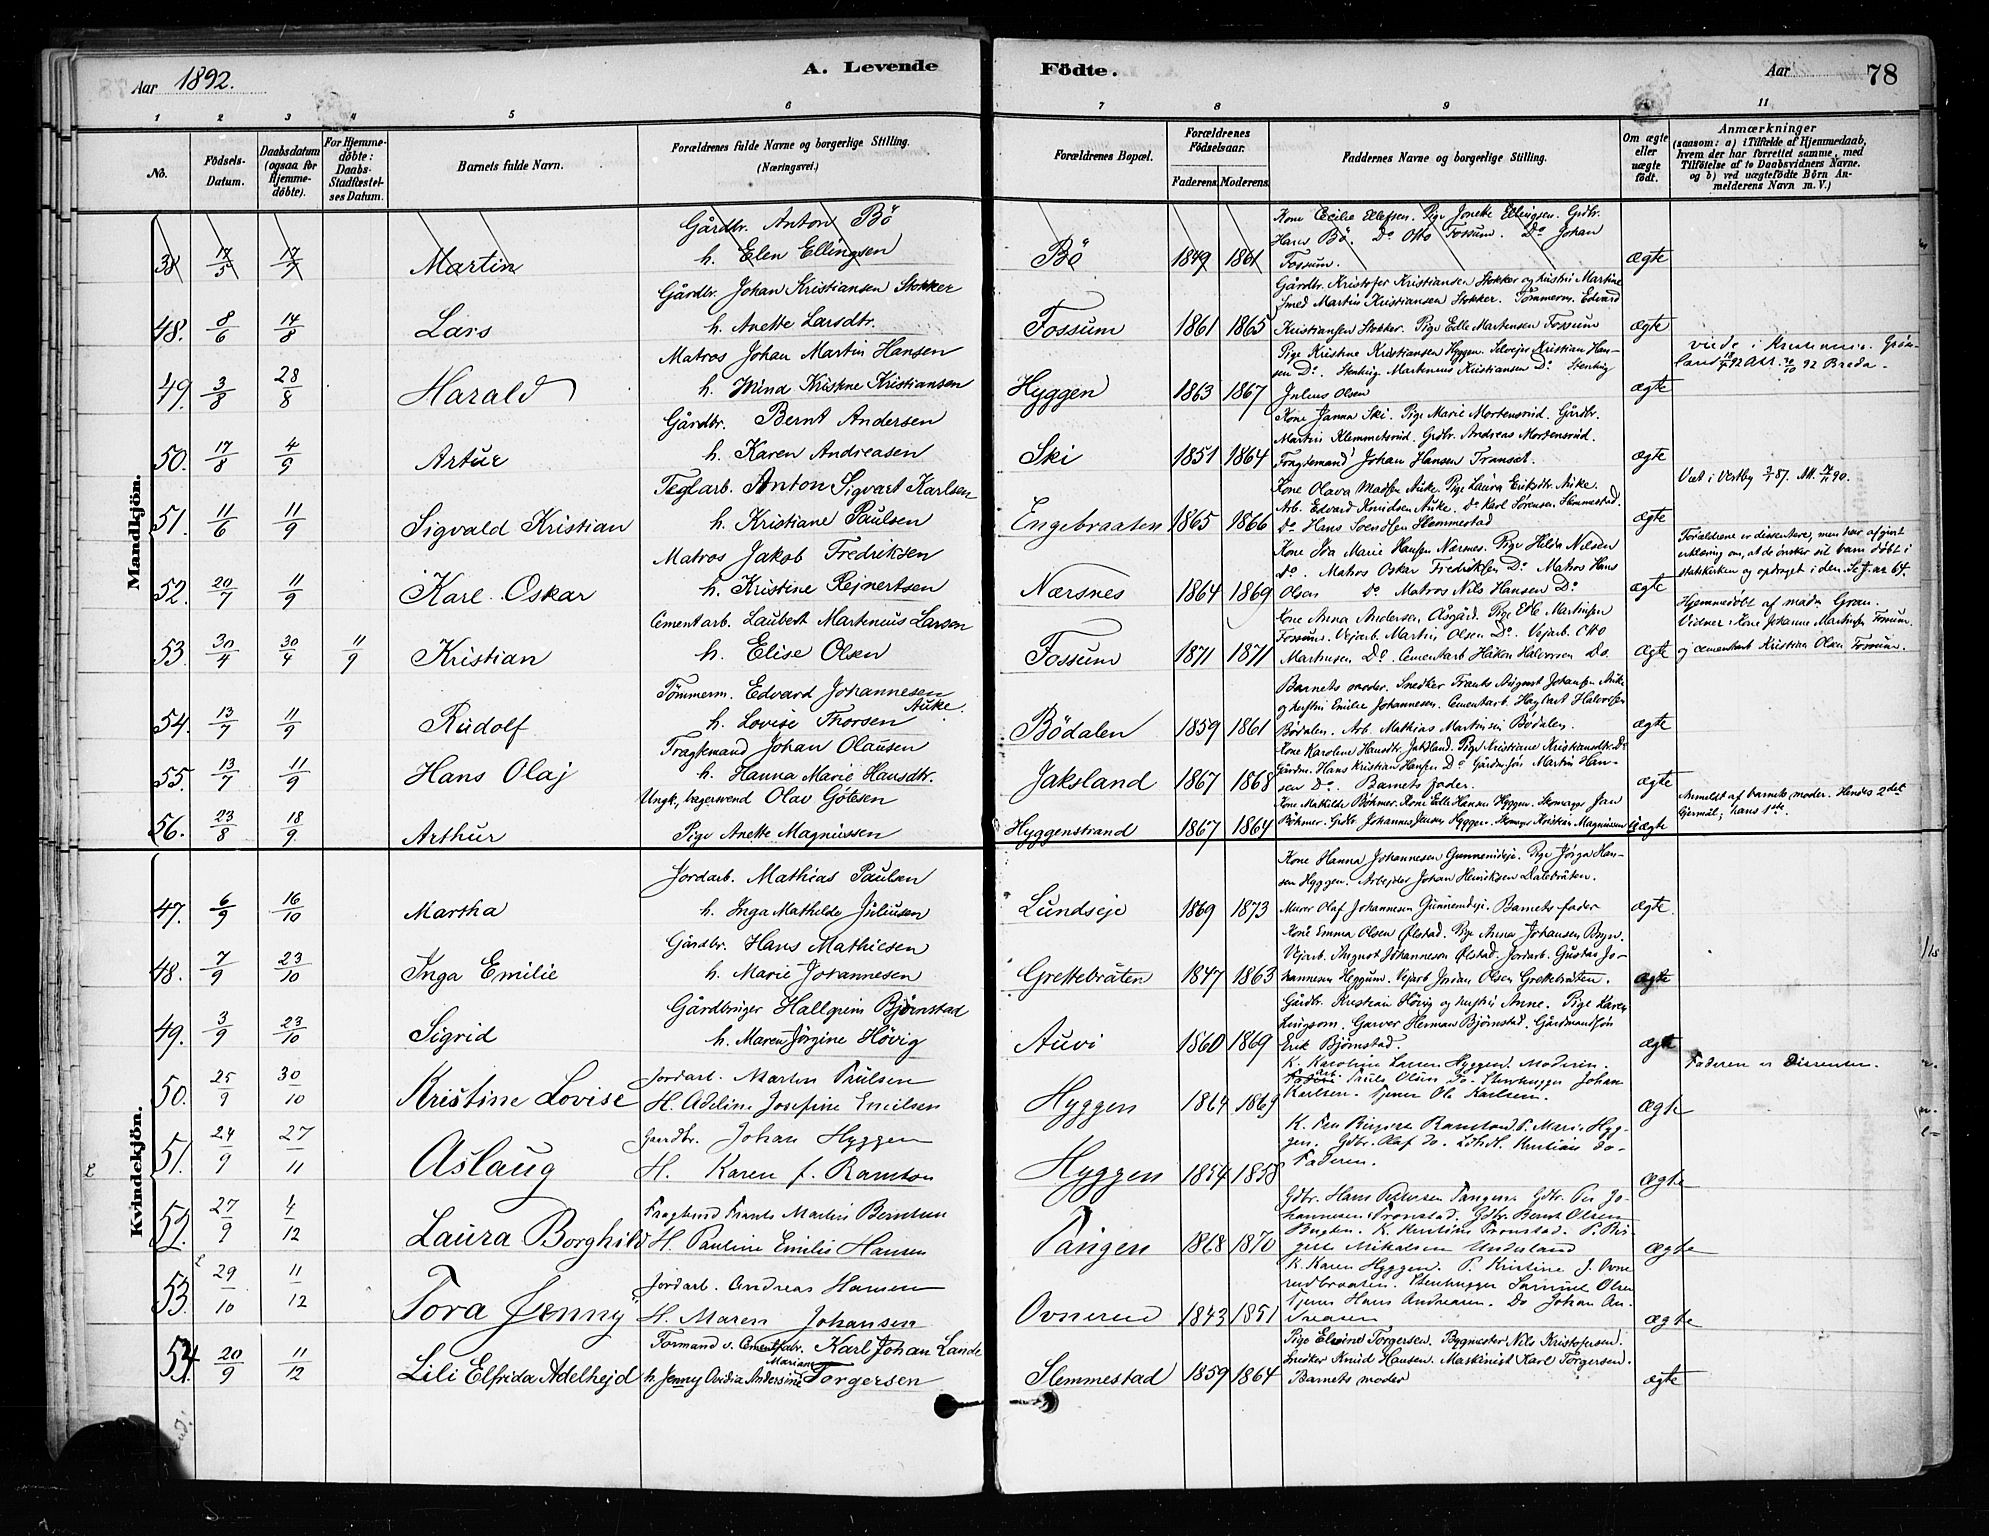 Aar 1892.
A. Levende
Födte.
Aar
78
1 2 3 4 5 6 7 8 9 11
No.
Födsels-
Datum.
Daabsdatum
(ogsaa for
Hjemme-
döbte).
For Hjemme-
döbte:
Daabs-
Stadfæstel-
ses Datum.
Barnets fulde Navn.
Forældrenes fulde Navne og borgerlige Stilling.
(Næringsvei.)
Forældrenes Bopæl.
Forældrenes
Födselsaar.
Faderens. Moderens.
Faddernes Navne og borgerlige Stilling.
Om ægte
eller
uægte
födt.
Anmærkninger
(saasom: a) i Tilfælde af Hjemmedaab,
hvem der har forrettet samme, med
Tilföielse af to Daabsvidners Navne.
og b) ved uægtefödte Börn An-
melderens Navn m. V.)
Mandkjön.
38 17/5 17/7 Martin
Gårdbr. Anton Bö
h. Elen Ellingsen
Bö 1849 1861
Kone Cecilie Ellefsen. Pige Jonette Ellingsen. Grdbr.
Hans Bö. Do Otto Fossum. Do Johan
Fossum.
ægte
48. 8/6 14/8 Lars
Gårdbr. Johan Kristiansen Stokker
h. Anette Larsdtr.
Fossum 1861 1865
Gårdbr. Kristofer Kristiansen Stokker og hustru Martine
Smed Martin Kristiansen Stokker. Tømmerm. Edvard
Kristiansen Stokker. Pige Elle Martensen Fossum
ægte
49. 3/8 28/8 Harald
Matros Johan Martin Hansen
h. Mina Kristine Kristiansen
Hyggen 1863 1867
Pige Kristine Kristiansen Hyggen. Selvejer Kristian Han-
sen Do. Stenhug Martenius Kristiansen Do Stenhug
Julius Olsen
ægte
50. 17/8 4/9 Artur
Gårdbr. Bernt Andersen
h. Karen Andreasen
Ski 1851 1864
Kone Janna Ski. Pige Marie Mortensrud. Gårdbr.
Martin Klemmetsrud. Grdbr. Andreas Mortensrud.
Fragtemand Johan Hansen Transet.
ægte
51. 11/6 11/9 Sigvald Kristian
Teglarb. Anton Sigvart Karlsen
h. Kristiane Paulsen
Engebraaten 1865 1866
Kone Olava Madsen Auke. Pige Laura Eriksdtr. Auke.
Arb. Edvard Knudsen Auke. Do Karl Sørensen Slemmestad.
Do Hans Svendsen Slemmestad
ægte
52. 20/7 11/9 Karl Oskar
Matros Jakob Fredriksen
h. Kristine Rejnertsen
Nærsnes 1864 1869
Kone Ida Marie Hansen Nærsnes. Pige Hilda Nilsen
Do. Matros Oskar Fredriksen Do Matros Hans
Olsen Do Matros Nils Hansen Do
ægte
Forældrene er dissentere, men har afgivet
erklæring om, at de ønsker sit barn døbt i
statskirken og opdraget i den.
53. 30/4 30/4 11/9 Kristian
Cementarb. Laubert Martenius Larsen
h. Elise Olsen
Fossum 1871 1871
Kone Anna Andersen Åsgård. Pige Martinsen
Fossum. Vejarb. Martin Olsen Do. Vejarb. Otto
Martinsen Do. Cementarb Håkon Halvorsen Do.
ægte
Hjemmedøbt af madm Gran.
Vidner: Kone Johanne Martinsen Fossum
og cementarb Kristian Olsen Fossum.
54. 13/7 11/9 Rudolf
Tömmerm. Edvard Johannesen
Auke.
h. Lovise Thorsen
Bödalen 1859 1861
Barnets moder. Snedker Frants August Johansen Auke
og hustru Emilie Johannesen. Cementarb. Hagbart Halvorsen
Bödalen. Arb. Mathias Martinsen Bödalen.
ægte
55. 13/7 11/9 Hans Olaj
Fragtemand Johan Olausen
h. Hanna Marie Hansdtr.
Jaksland 1867 1868
Kone Karoline Hansdtr. Jaksland. Pige Kristiane Kristiansdtr. Do
Gårdm. Hans Kristian Hansen Do Gårdmssøn Martin Han-
sen Do. Barnets fader.
ægte
56. 23/8 18/9 Arthur
Ungk., bagersvend Olav Götesen
Pige Anette Magnussen
Hyggenstrand 1867 1864
Kone Mathilde Böhmer. Kone Elle Hansen Hyggen. Skomager Jan
Böhmer. Grdbr Johannes Jensen Hyggen. Skomager Kristian Magnussen
uægte
Anmeldt af barnets moder. Hendes 2det
lejermål, hans 1ste.
Kvindekjön.
47. 6/9 16/10 Martha
Jordarb. Mathias Paulsen
h. Inga Mathilde Juliusen
Lundseje 1869 1873
Kone Hanna Johannesen Gunnerudeje. Pige Jörga Han-
sen Hyggen. Arbejder Johan Henriksen Dalebråten.
Murer Olaf Johannesen Gunnerudeje. Barnets fader
ægte.
48. 7/9 23/10 Inga Emilie
Gårdbr. Hans Mathiesen
h. Marie Johannesen
Grettebråten 1847 1863
Kone Emma Olsen Ølstad. Pige Anna Johansen Bryn.
Vejarb. August Johannesen Ølstad. Jordarb. Gustav Jo-
hannesen Heggum. Vejarb Jordan Olsen Grettebråten.
ægte
49. 3/9 23/10 Sigrid
Gårdbruger Hallgrim Bjørnstad
h. Maren Jörgine Hövig
Auvi 1860 1869
Gårdbr. Kristian Hövig og hustru Anne. Pige Karen
Lingsom. Garver Herman Bjørnstad. Gårdmandssön
Erik Bjørnstad.
ægte
50. 25/9 30/10 Kristine Lovise
Jordarb. Martin Paulsen
H. Adeline Josefine Emilsen
Hyggen 1864 1869
K. Karoline Larsen Hyggen. Moderen.
Pauls Olsen Do. Stenhugger Johan
Karlsen. Tjener Ole Karlsen.
ægte
Faderen er Dissenter.
51. 24/9 27/11 Aslaug
Gaardbr. Johan Hyggen
H. Karen f. Ramton
Hyggen 1854 1858
Ramstad P. Marie Hyg-
gen. Gdbr. Olaf do. Kristian do-
Faderen.
ægte
52. 27/9 4/12 Laura Borghild
Fragtmd Frants Martin Berntsen
H. Pauline Emilie Hansen
Tangen 1868 1870
Gdbr. Hans Pettersen Tangen. Gdbr. Per Jo-
hannesen Tronstad. Gdbr Bernt Olsen
Bugten. K. Kristine Tronstad. P. Bir-
gitte Mikalsen Underland
ægte
53. 29/10 11/12 Tora Jenny
Jordarb. Andreas Hansen
H. Maren Johansen
Ovnerud 1843 1851
K. Karen Hyggen. P. Kristine J. Ovne
rudbraaten. Stenhugger Samuel Olsen
Tjener Hans Andreasen. Do Johan An-
dreasen
ægte
54. 20/9 11/12 Lili Elfrida Adelhejd
Formand v. Cementfabr. Karl Johan Lande
Mariane
h. Jenny Ovidia Andersine Torgersen
Slemmestad 1859 1864
Pige Elvine Torgersen. Bygmester Nils Kristofersen.
Snedker Knud Hansen. Maskinist Karl Torgersen.
Barnets moder
ægte